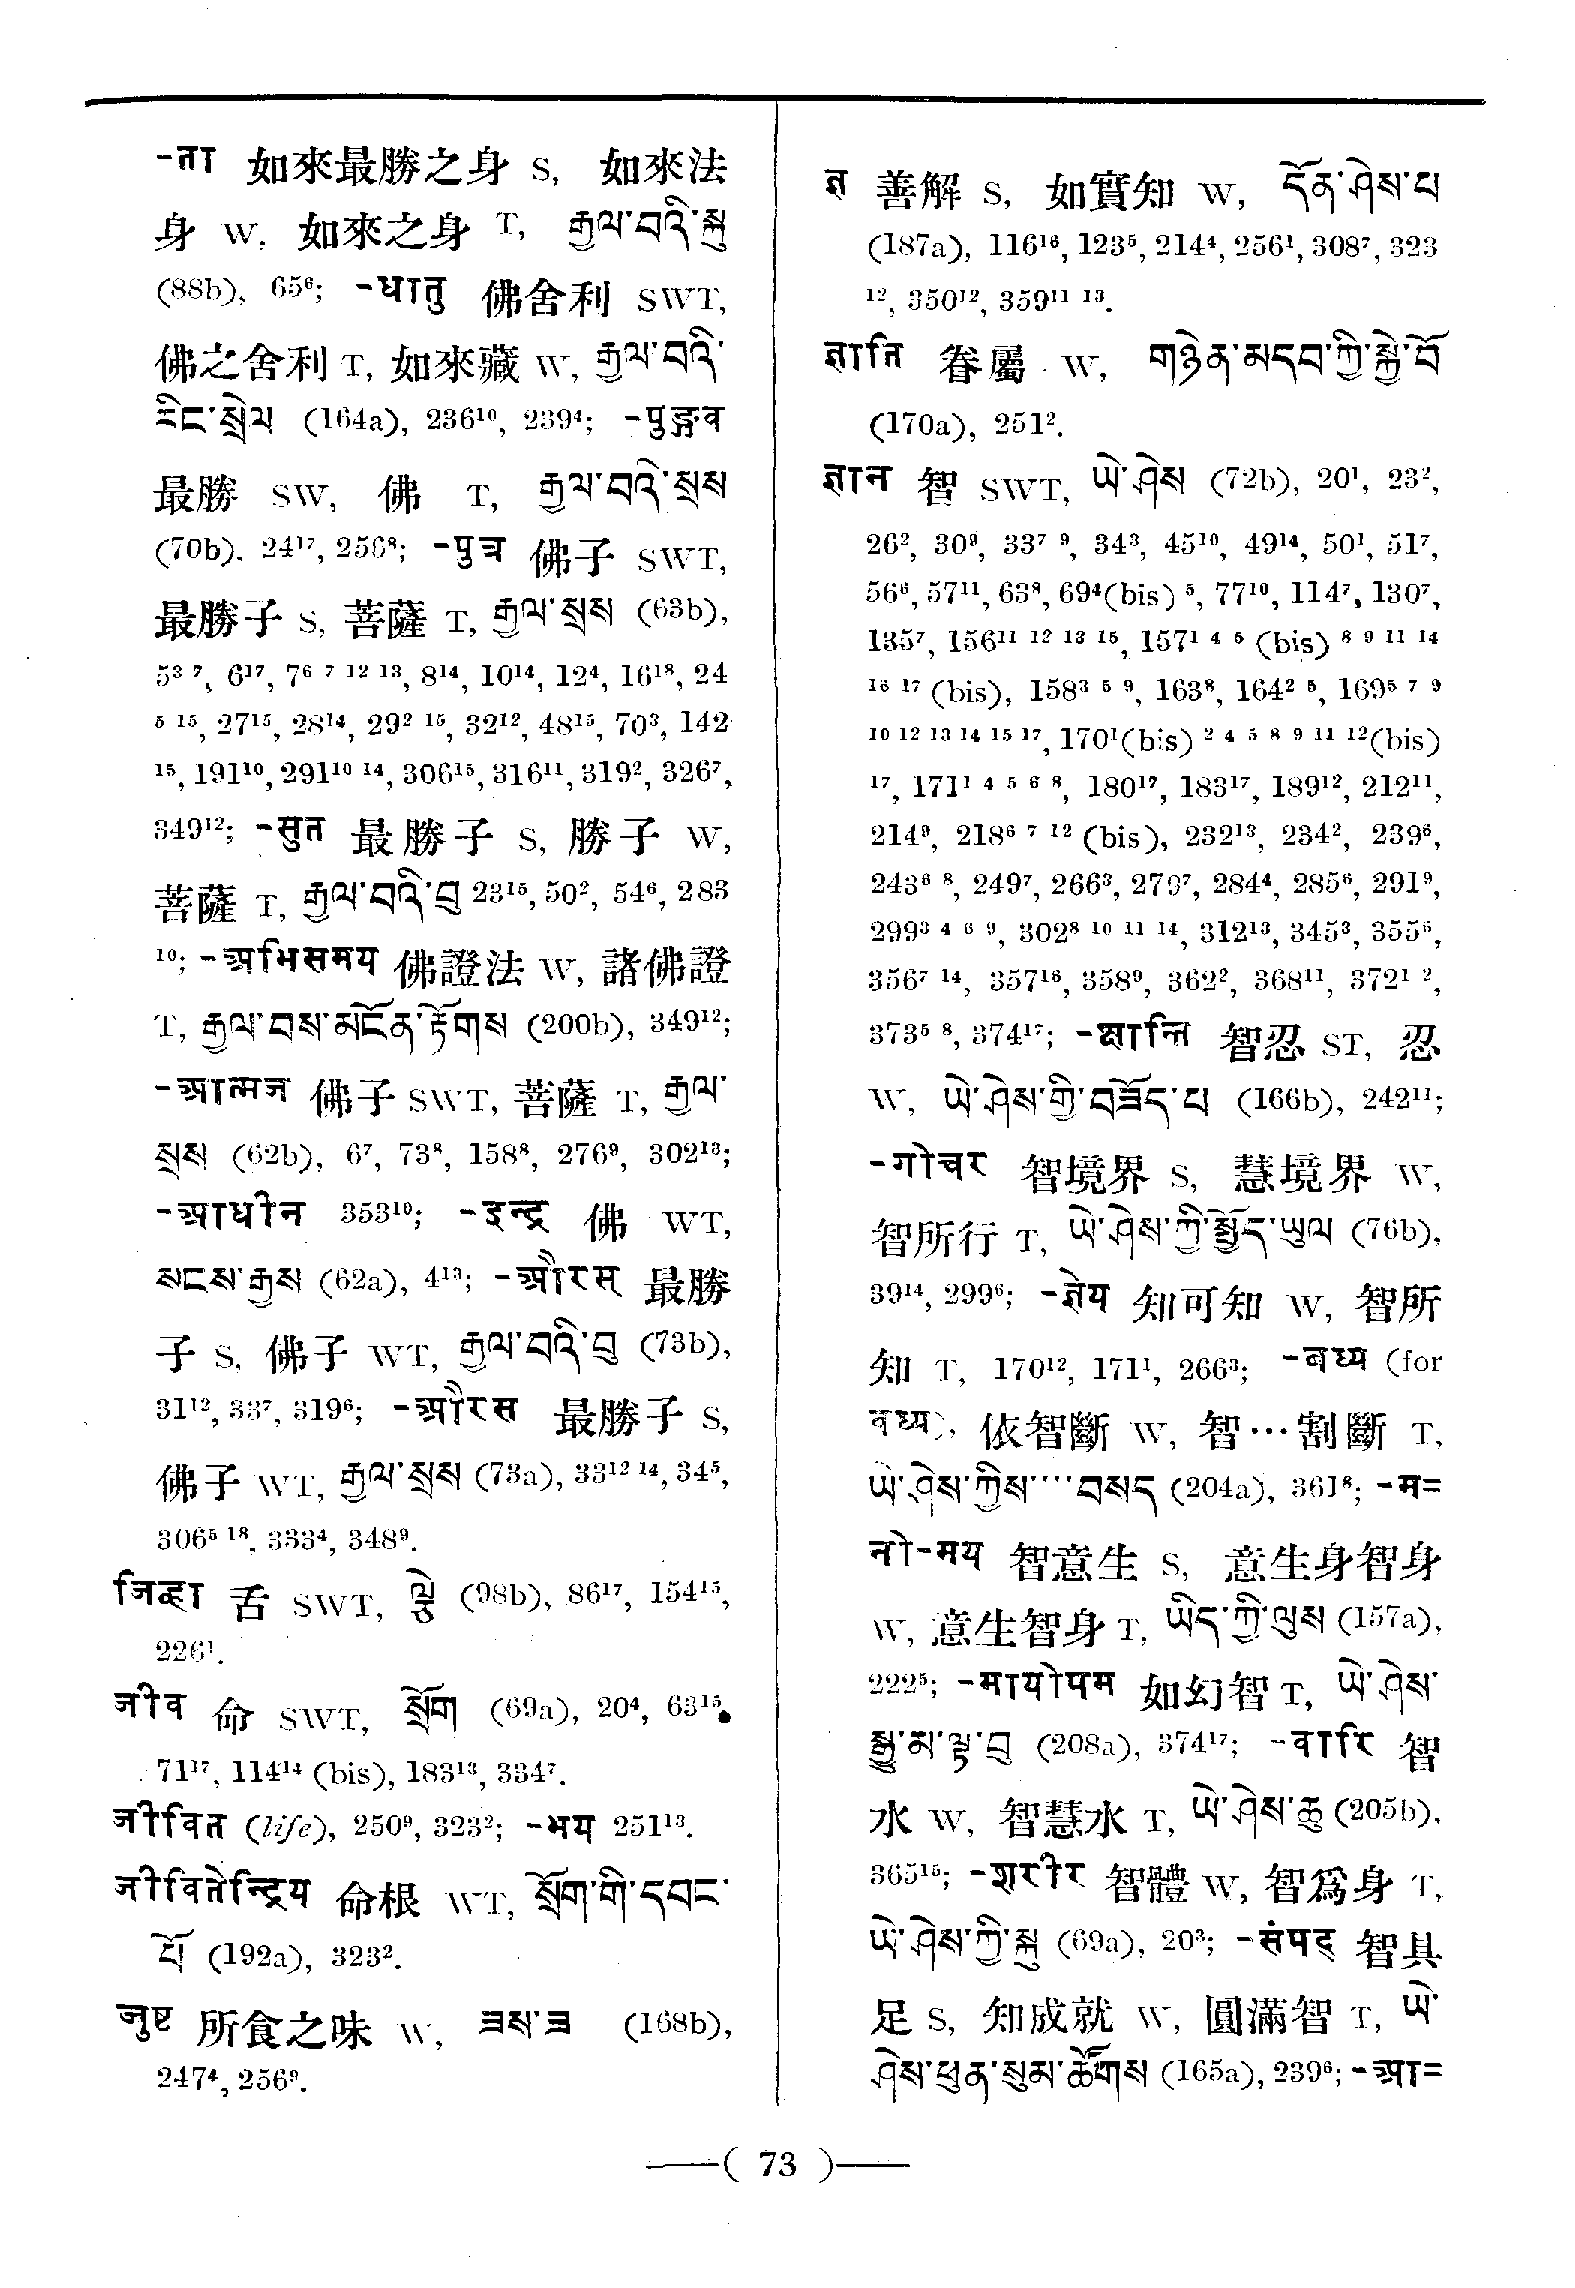 -ता 如來最勝之身 S, 如來法
身 W, 如來之身 T, རྒྱལ་བའི་སྐུ
(88b), 65⁶; -धातु 佛舍利 SWT,
佛之舍利 T, 如來藏 W, རྒྱལ་བའི་
རིང་སྲེལ (164a), 236¹⁰, 239⁴; -पुङ्गव
最勝 SW, 佛 T, རྒྱལ་བའི་སྲས
(70b), 24¹⁷, 256⁸; -पुत्र 佛子 SWT,
最勝子 S, 菩薩 T, རྒྱལ་སྲས (63b),
5³ ⁷, 6¹⁷, 7⁶ ⁷ ¹² ¹³, 8¹⁴, 10¹⁴, 12⁴, 16¹⁸, 24
⁵ ¹⁵, 27¹⁵, 28¹⁴, 29² ¹⁵, 32¹², 48¹⁵, 70³, 142
¹⁵, 191¹⁰, 291¹⁰ ¹⁴, 306¹⁵, 316¹¹, 319², 326⁷,
349¹²; -सुत 最勝子 S, 勝子 W,
菩薩 T, རྒྱལ་བའི་བུ 23¹⁵, 50², 54⁶, 283
¹⁰; -अभिसमय 佛證法 W, 諸佛證
T, རྒྱལ་བས་མངོན་རྟོགས (200b), 349¹²;
-आत्मज 佛子 SWT, 菩薩 T, རྒྱལ་
སྲས (62b), 6⁷, 73⁸, 158⁸, 276⁹, 302¹³;
-आधीन 353¹⁰; -इन्द्र 佛 WT,
སངས་རྒྱས (62a), 4¹³; -औरस् 最勝
子 S, 佛子 WT, རྒྱལ་བའི་བུ (73b),
31¹², 33⁷, 319⁶; -औरस 最勝子 S,
佛子 WT, རྒྱལ་སྲས (73a), 33¹² ¹⁴, 34⁵,
306⁵ ¹⁸, 333⁴, 348⁹.
जिह्वा 舌 SWT, ལྕེ (98b), 86¹⁷, 154¹⁵,
226¹.
जीव 命 SWT, སྲོག (69a), 20⁴, 63¹⁵,
71¹⁷, 114¹⁴ (bis), 183¹³, 334⁷.
जीवित (life), 250⁹, 323²; -भय 251¹³.
जीवितेन्द्रिय 命根 WT, སྲོག་གི་དབང་
པོ (192a), 323².
जुष्ट 所食之味 W, ཟས་ཟ (168b),
247⁴, 256⁹.
ज्ञ 善解 S, 如實知 W, དོན་ཤེས་པ
(187a), 116¹⁶, 123⁵, 214⁴, 256¹, 308⁷, 323
¹², 350¹², 359¹¹ ¹³.
ज्ञाति 眷屬 W, གཉེན་མདབ་ཀྱི་སྐྱེ་བོ
(170a), 251².
ज्ञान 智 SWT, ཡེ་ཤེས (72b), 20¹, 23²,
26², 30⁹, 33⁷ ⁹, 34³, 45¹⁰, 49¹⁴, 50¹, 51⁷,
56⁶, 57¹¹, 63⁸, 69⁴(bis) ⁵, 77¹⁰, 114⁷, 130⁷,
135⁷, 156¹¹ ¹² ¹³ ¹⁵, 157¹ ⁴ ⁵ (bis) ⁸ ⁹ ¹¹ ¹⁴
¹⁶ ¹⁷ (bis), 158³ ⁵ ⁹, 163⁸, 164² ⁵, 169⁵ ⁷ ⁹
¹⁰ ¹² ¹³ ¹⁴ ¹⁵ ¹⁷, 170¹(bis) ² ⁴ ⁵ ⁸ ⁹ ¹¹ ¹²(bis)
¹⁷, 171¹ ⁴ ⁵ ⁶ ⁸, 180¹⁷, 183¹⁷, 189¹², 212¹¹,
214⁹, 218⁶ ⁷ ¹² (bis), 232¹³, 234², 239⁶,
243⁶ ⁸, 249⁷, 266³, 279⁷, 284⁴, 285⁶, 291⁹,
299³ ⁴ ⁶ ⁹, 302⁸ ¹⁰ ¹¹ ¹⁴, 312¹³, 345³, 355⁶,
356⁷ ¹⁴, 357¹⁶, 358⁹, 362², 368¹¹, 372¹ ²,
373⁵ ⁸, 374¹⁷; -क्षान्ति 智忍 ST, 忍
W, ཡེ་ཤེས་གྱི་བཟོད་པ (166b), 242¹¹;
-गोचर 智境界 S, 慧境界 W,
智所行 T, ཡེ་ཤེས་ཀྱི་སྤྱོད་ཡུལ (76b),
39¹⁴, 299⁶; -ज्ञेय 知可知 W, 智所
知 T, 170¹², 171¹, 266³; -बध्य (for
वध्य), 依智斷 W, 智…割斷 T,
ཡེ་ཤེས་ཀྱིས་...བསད (204a), 361⁸; -म=
नो-मय 智意生 S, 意生身智身
W, 意生智身 T, ཡིད་ཀྱི་ལུས (157a),
222⁵; -मायोपम 如幻智 T, ཡེ་ཤེས་
སྒྱུ་མ་ལྟ་བུ (208a), 374¹⁷; -वारि 智
水 W, 智慧水 T, ཡེ་ཤེས་ཆུ (205b),
365¹⁵; -शरीर 智體 W, 智爲身 T,
ཡེ་ཤེས་ཀྱི་སྐུ (69a), 20³; -संपद् 智具
足 S, 知成就 W, 圓滿智 T, ཡེ་
ཤེས་ཕུན་སུམ་ཚོགས (165a), 239⁶; -आ=
—( 73 )—